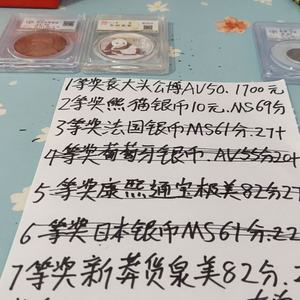 1等奖袁大头公博AV50.1700元
2等奖熊猫银币10元.MS69分
3等奖法国银币MS61分.27十
4等奖葡萄牙银币.AV55分20十
5等奖康熙通宝极美82分2
6等奖日本银币MS61分.22
7等奖新莽货泉美82分.